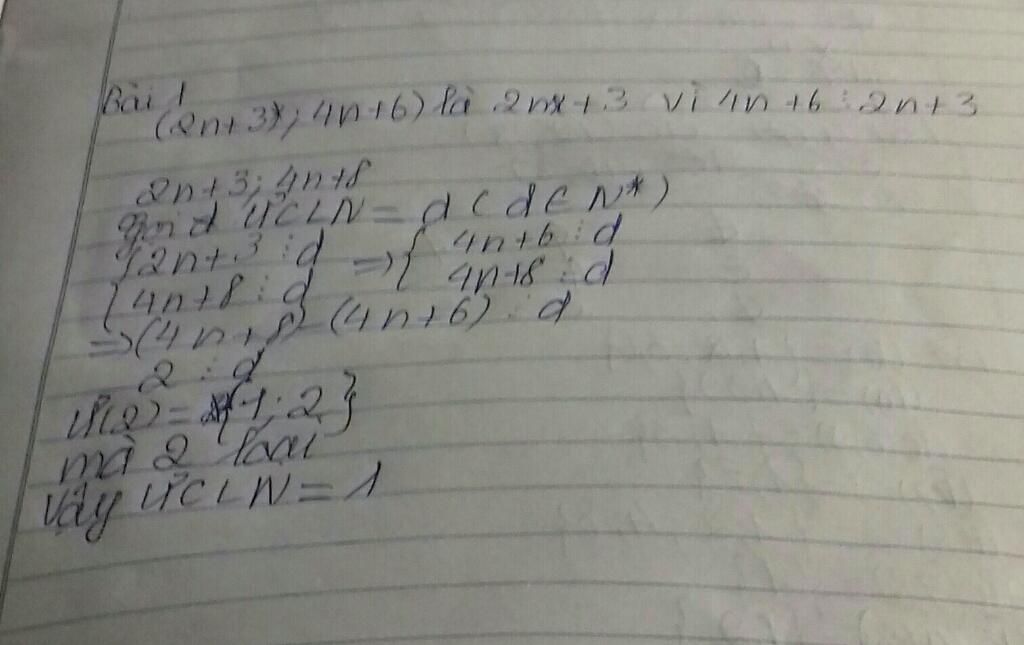 Bài 1
(2n+3; 4n+6) là 2n+3 vì 4n+6 ⋮ 2n+3
2n+3; 4n+8
gọi d ƯCLN = d (d ∈ N*)
{2n+3 ⋮ d => { 4n+6 ⋮ d
{4n+8 ⋮ d 4n+8 ⋮ d
=> (4n+8) (4n+6) ⋮ d
2 ⋮ d
Ư(2) = {1; 2}
mà 2 loại
Vậy ƯCLN = 1